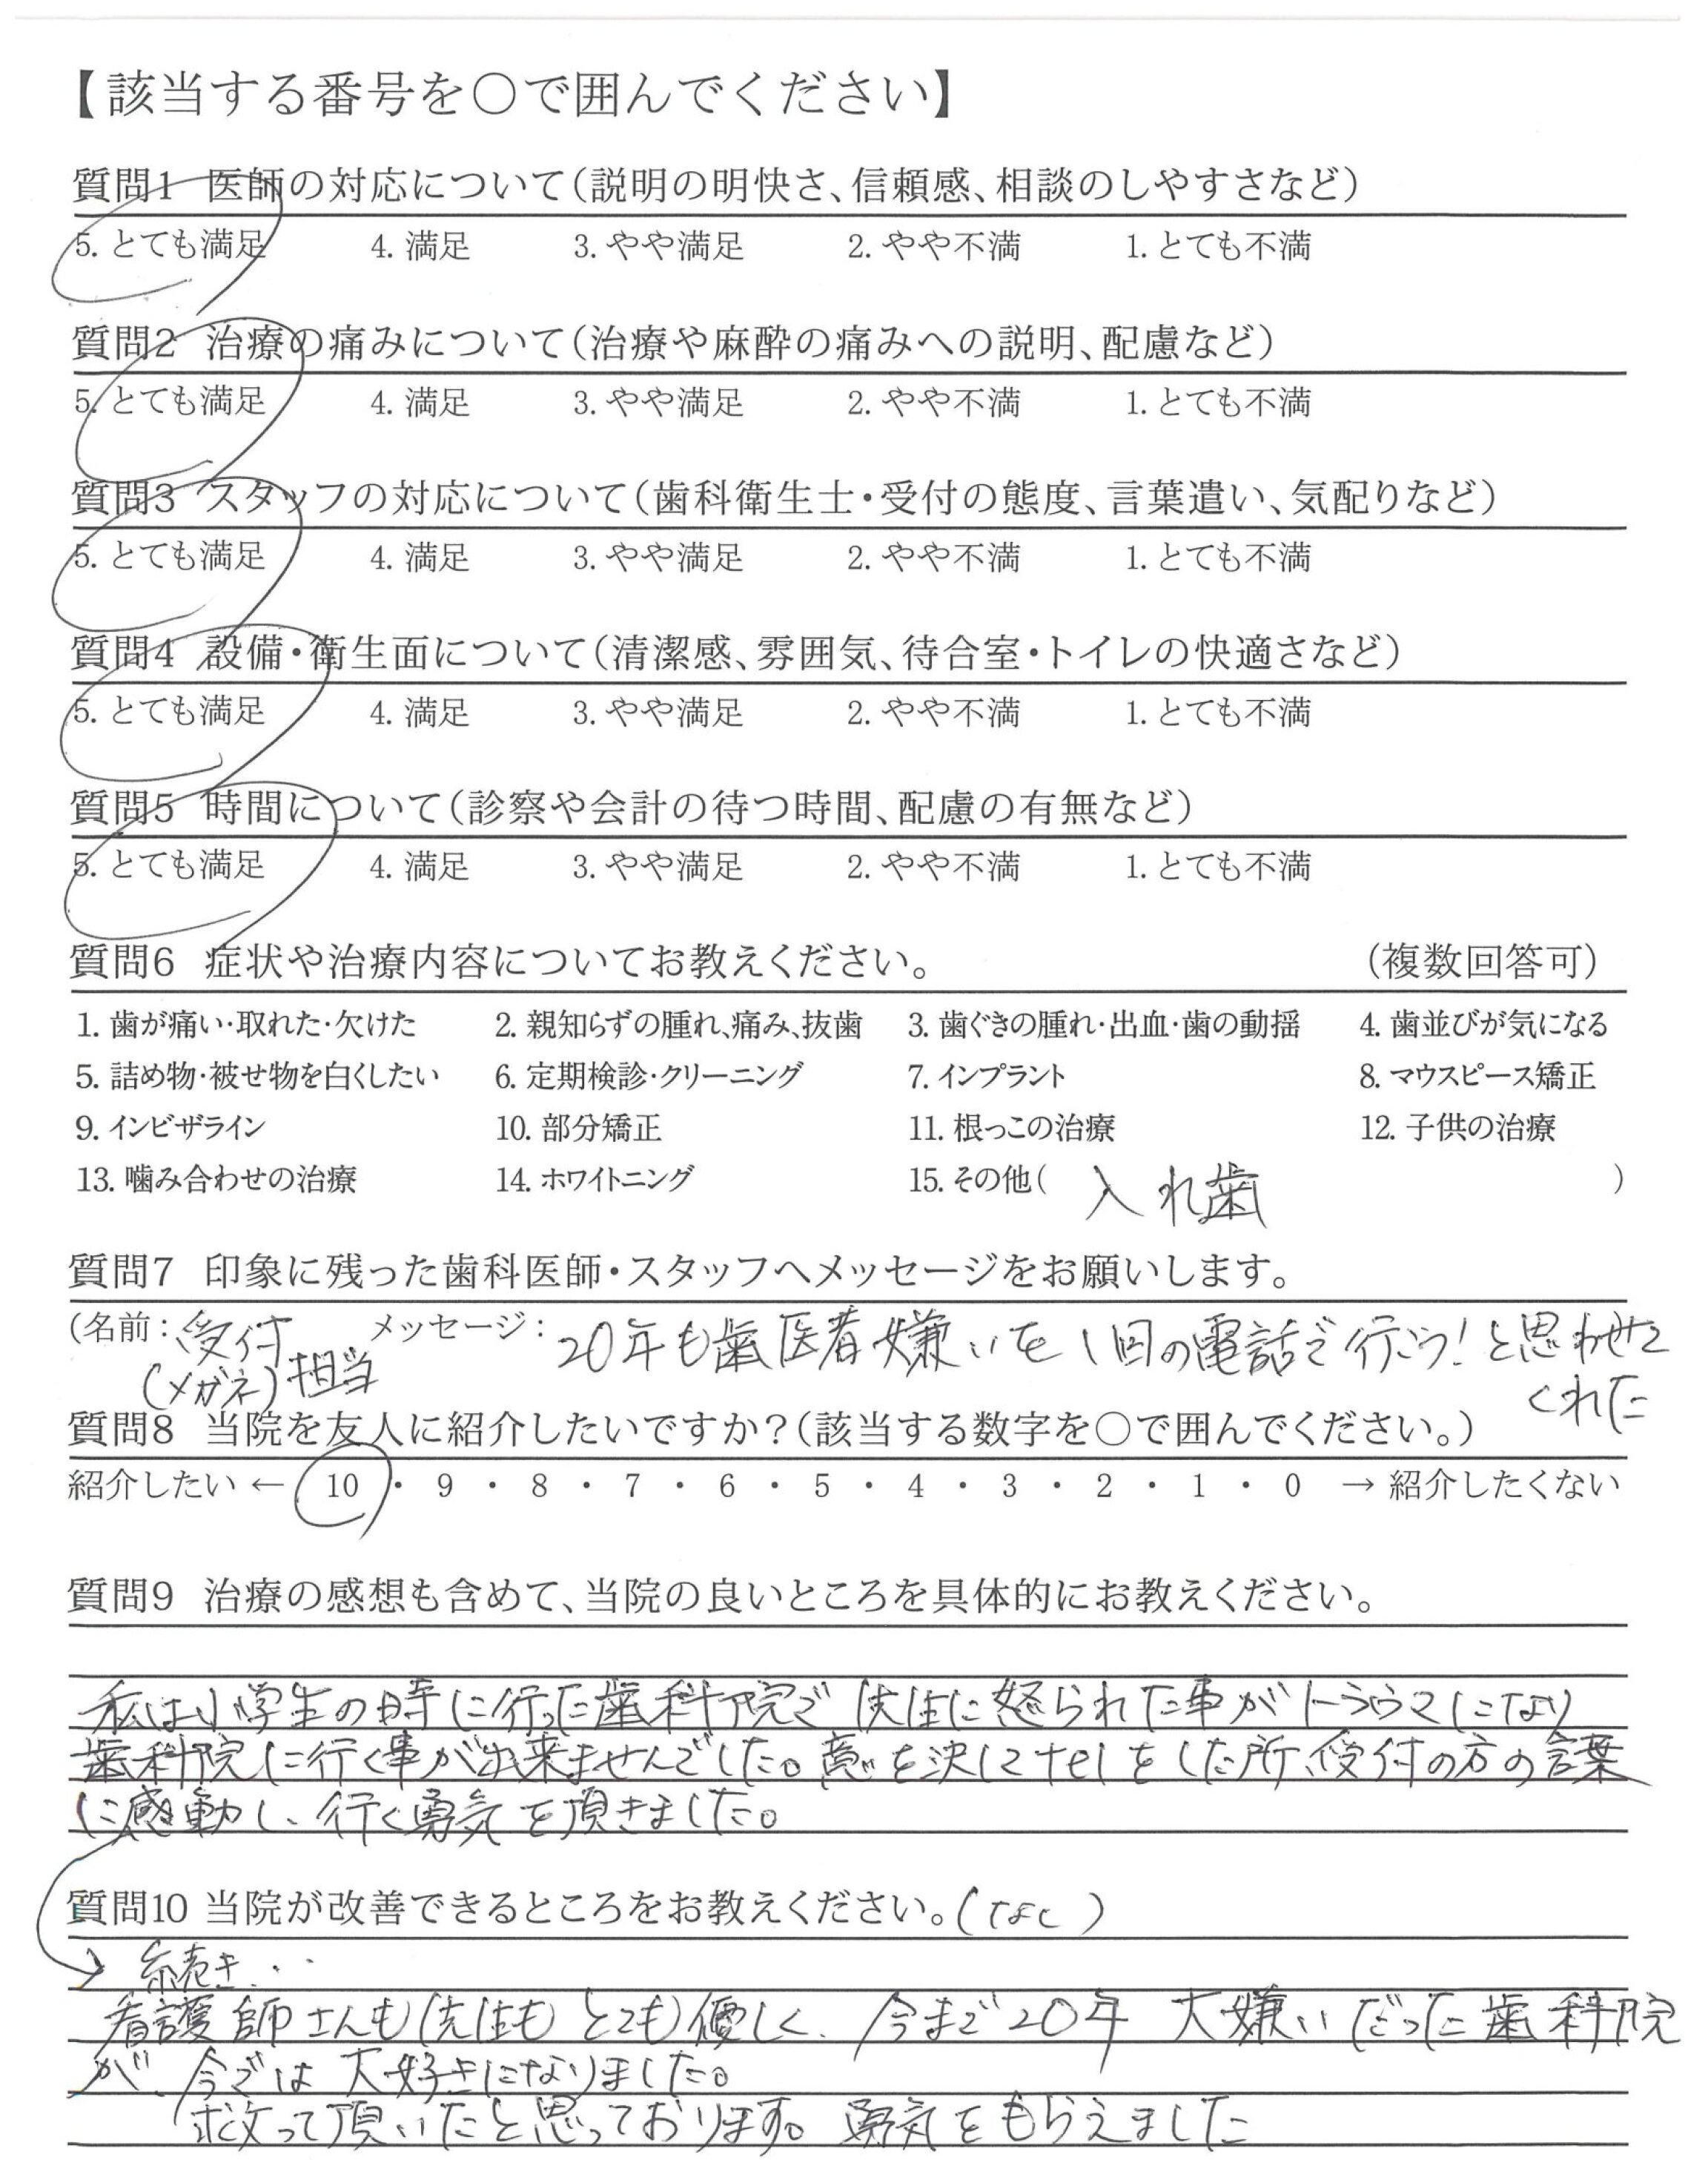 【該当する番号を○で囲んでください】
質問1 医師の対応について(説明の明快さ、信頼感、相談のしやすさなど)
5. とても満足 4. 満足 3. やや満足 2. やや不満 1. とても不満
質問2 治療の痛みについて(治療や麻酔の痛みへの説明、配慮など)
5. とても満足 4. 満足 3. やや満足 2. やや不満 1. とても不満
質問3 スタッフの対応について(歯科衛生士・受付の態度、言葉遣い、気配りなど)
5. とても満足 4. 満足 3. やや満足 2. やや不満 1. とても不満
質問4 設備・衛生面について(清潔感、雰囲気、待合室・トイレの快適さなど)
5. とても満足 4. 満足 3. やや満足 2. やや不満 1. とても不満
質問5 時間について(診察や会計の待つ時間、配慮の有無など)
5. とても満足 4. 満足 3. やや満足 2. やや不満 1. とても不満
質問6 症状や治療内容についてお教えください。 (複数回答可)
1. 歯が痛い・取れた・欠けた 2. 親知らずの腫れ、痛み、抜歯 3. 歯ぐきの腫れ・出血・歯の動揺 4. 歯並びが気になる
5. 詰め物・被せ物を白くしたい 6. 定期検診・クリーニング 7. インプラント 8. マウスピース矯正
9. インビザライン 10. 部分矯正 11. 根っこの治療 12. 子供の治療
13. 噛み合わせの治療 14. ホワイトニング 15. その他( 入れ歯 )
質問7 印象に残った歯科医師・スタッフへメッセージをお願いします。
(名前: 受付 メッセージ: 20年も歯医者嫌いを1回の電話で行こう!と思わせて
(メガネ)担当 くれた
質問8 当院を友人に紹介したいですか?(該当する数字を○で囲んでください。)
紹介したい ← 10 ・ 9 ・ 8 ・ 7 ・ 6 ・ 5 ・ 4 ・ 3 ・ 2 ・ 1 ・ 0 → 紹介したくない
質問9 治療の感想も含めて、当院の良いところを具体的にお教えください。
私は小学生の時に行った歯科院で先生に怒られた事がトラウマになり
歯科院に行く事が出来ませんでした。意を決してtelをした所、受付の方の言葉
に感動し、行く勇気を頂きました。
質問10 当院が改善できるところをお教えください。(なし)
→ 続き…
看護師さんも先生もとても優しく、今まで20年 大嫌いだった歯科院
が、今では大好きになりました。
救って頂いたと思っております。勇気をもらえました